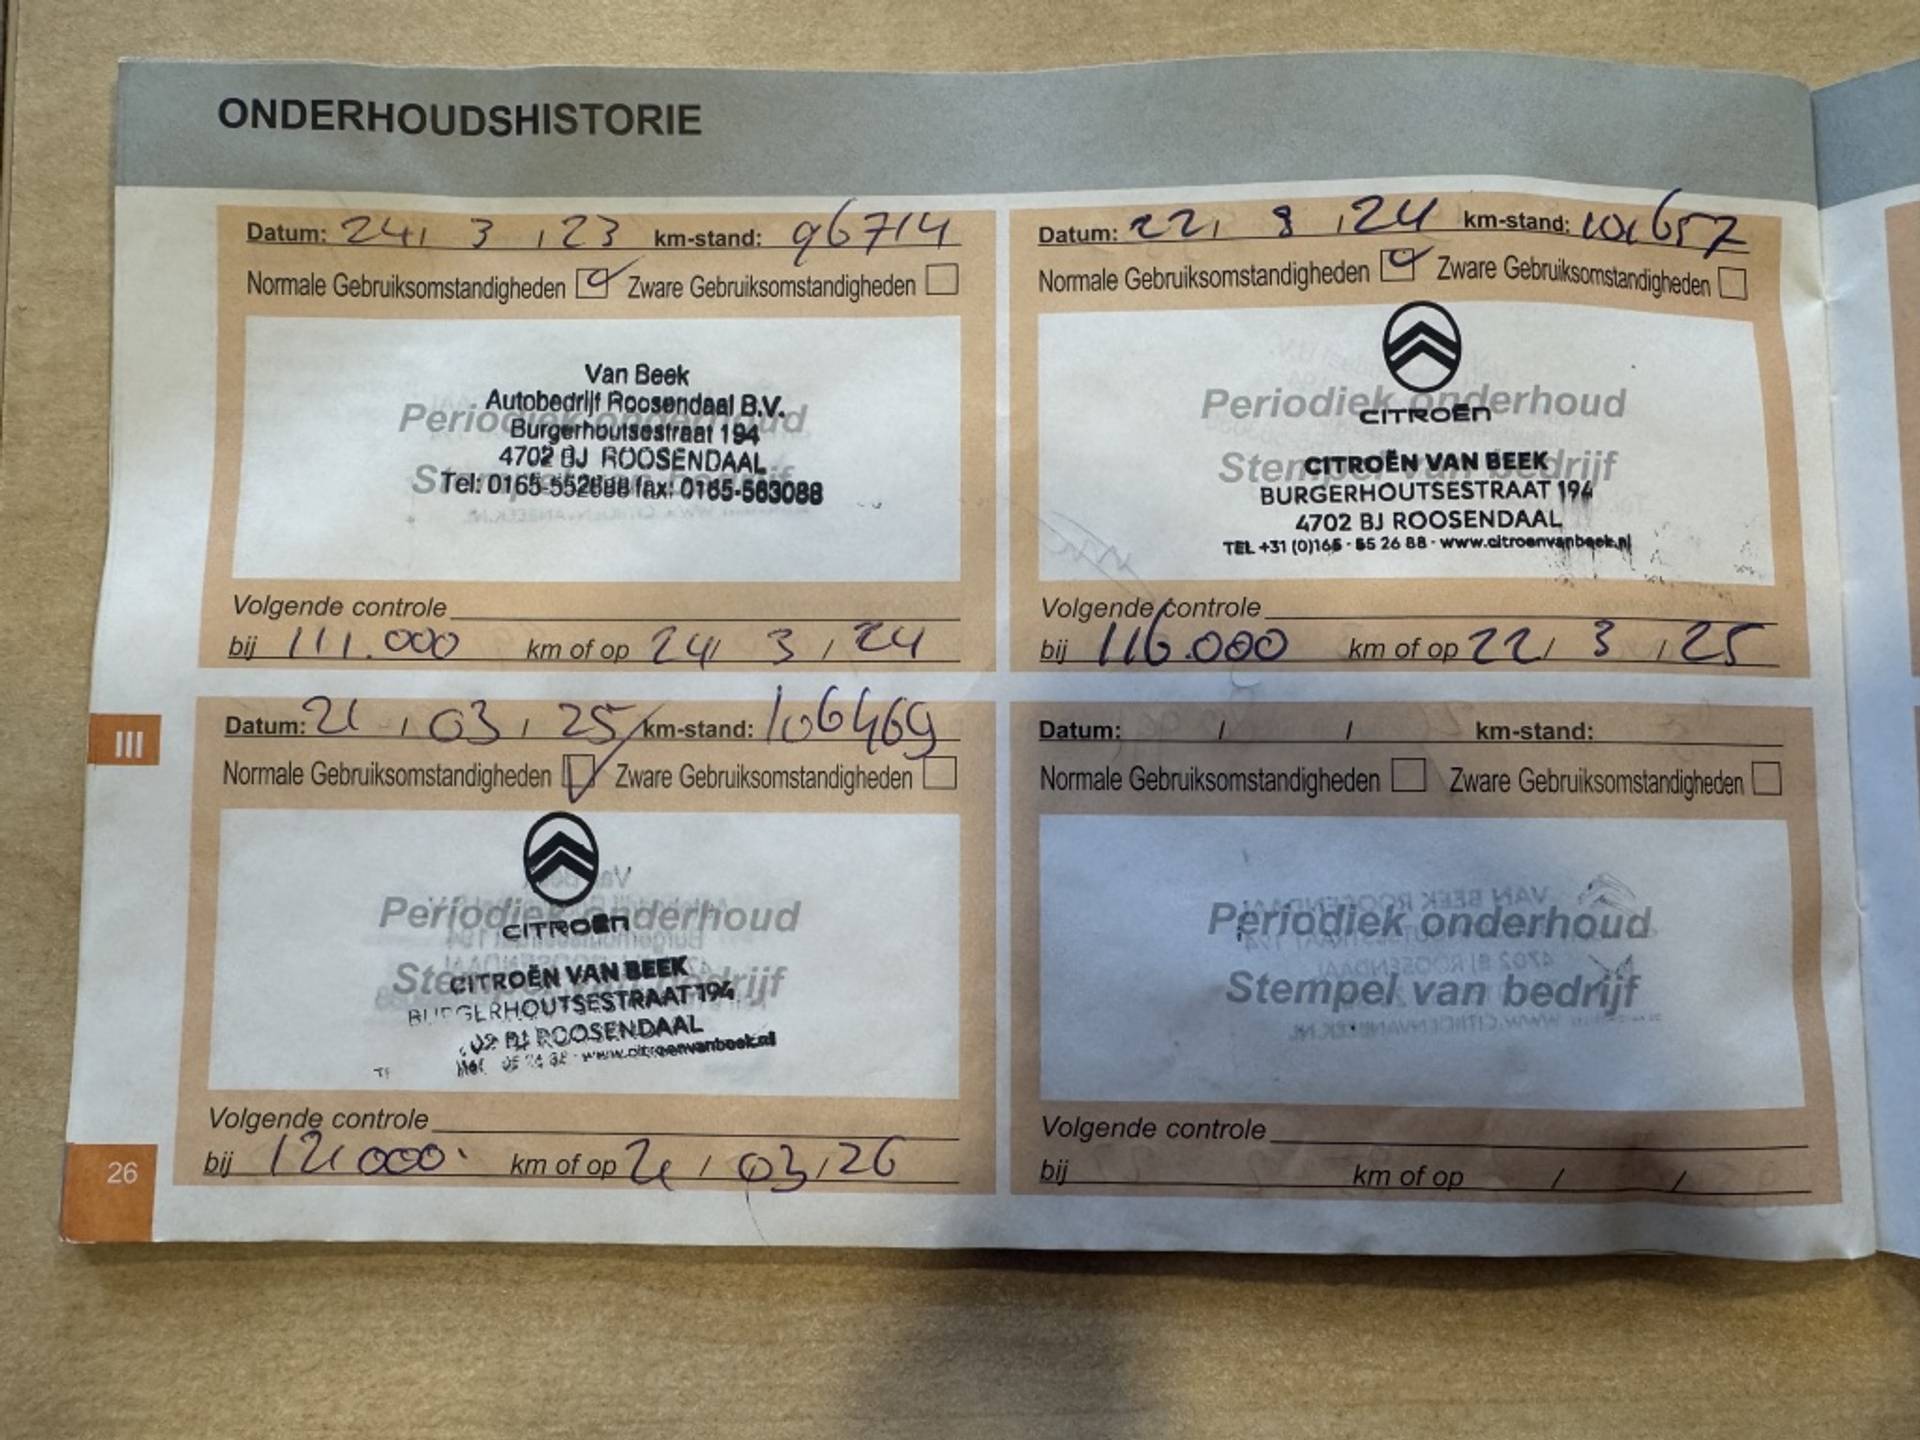 ONDERHOUDSHISTORIE
Datum: 24 / 3 / 23 km-stand: 96714
Normale Gebruiksomstandigheden Zware Gebruiksomstandigheden
Periodiek onderhoud
Stempel van bedrijf
Van Beek
Autobedrijf Roosendaal B.V.
Burgerhoutsestraat 194
4702 BJ ROOSENDAAL
Tel: 0165-552688 fax: 0165-563088
Volgende controle
bij 111.000 km of op 24 / 3 / 24
Datum: 22 / 3 / 24 km-stand: 101657
Normale Gebruiksomstandigheden Zware Gebruiksomstandigheden
Periodiek onderhoud
Stempel van bedrijf
CITROËN
CITROËN VAN BEEK
BURGERHOUTSESTRAAT 194
4702 BJ ROOSENDAAL
TEL +31 (0)165 - 55 26 88 - www.citroenvanbeek.nl
Volgende controle
bij 116.000 km of op 22 / 3 / 25
III
Datum: 21 / 03 / 25 km-stand: 106469
Normale Gebruiksomstandigheden Zware Gebruiksomstandigheden
Periodiek onderhoud
Stempel van bedrijf
CITROËN
CITROËN VAN BEEK
BURGERHOUTSESTRAAT 194
02 BJ ROOSENDAAL
www.citroenvanbeek.nl
Volgende controle
bij 121000 km of op 21 / 03 / 26
Datum: / / km-stand:
Normale Gebruiksomstandigheden Zware Gebruiksomstandigheden
Periodiek onderhoud
Stempel van bedrijf
Volgende controle
bij km of op / /
26